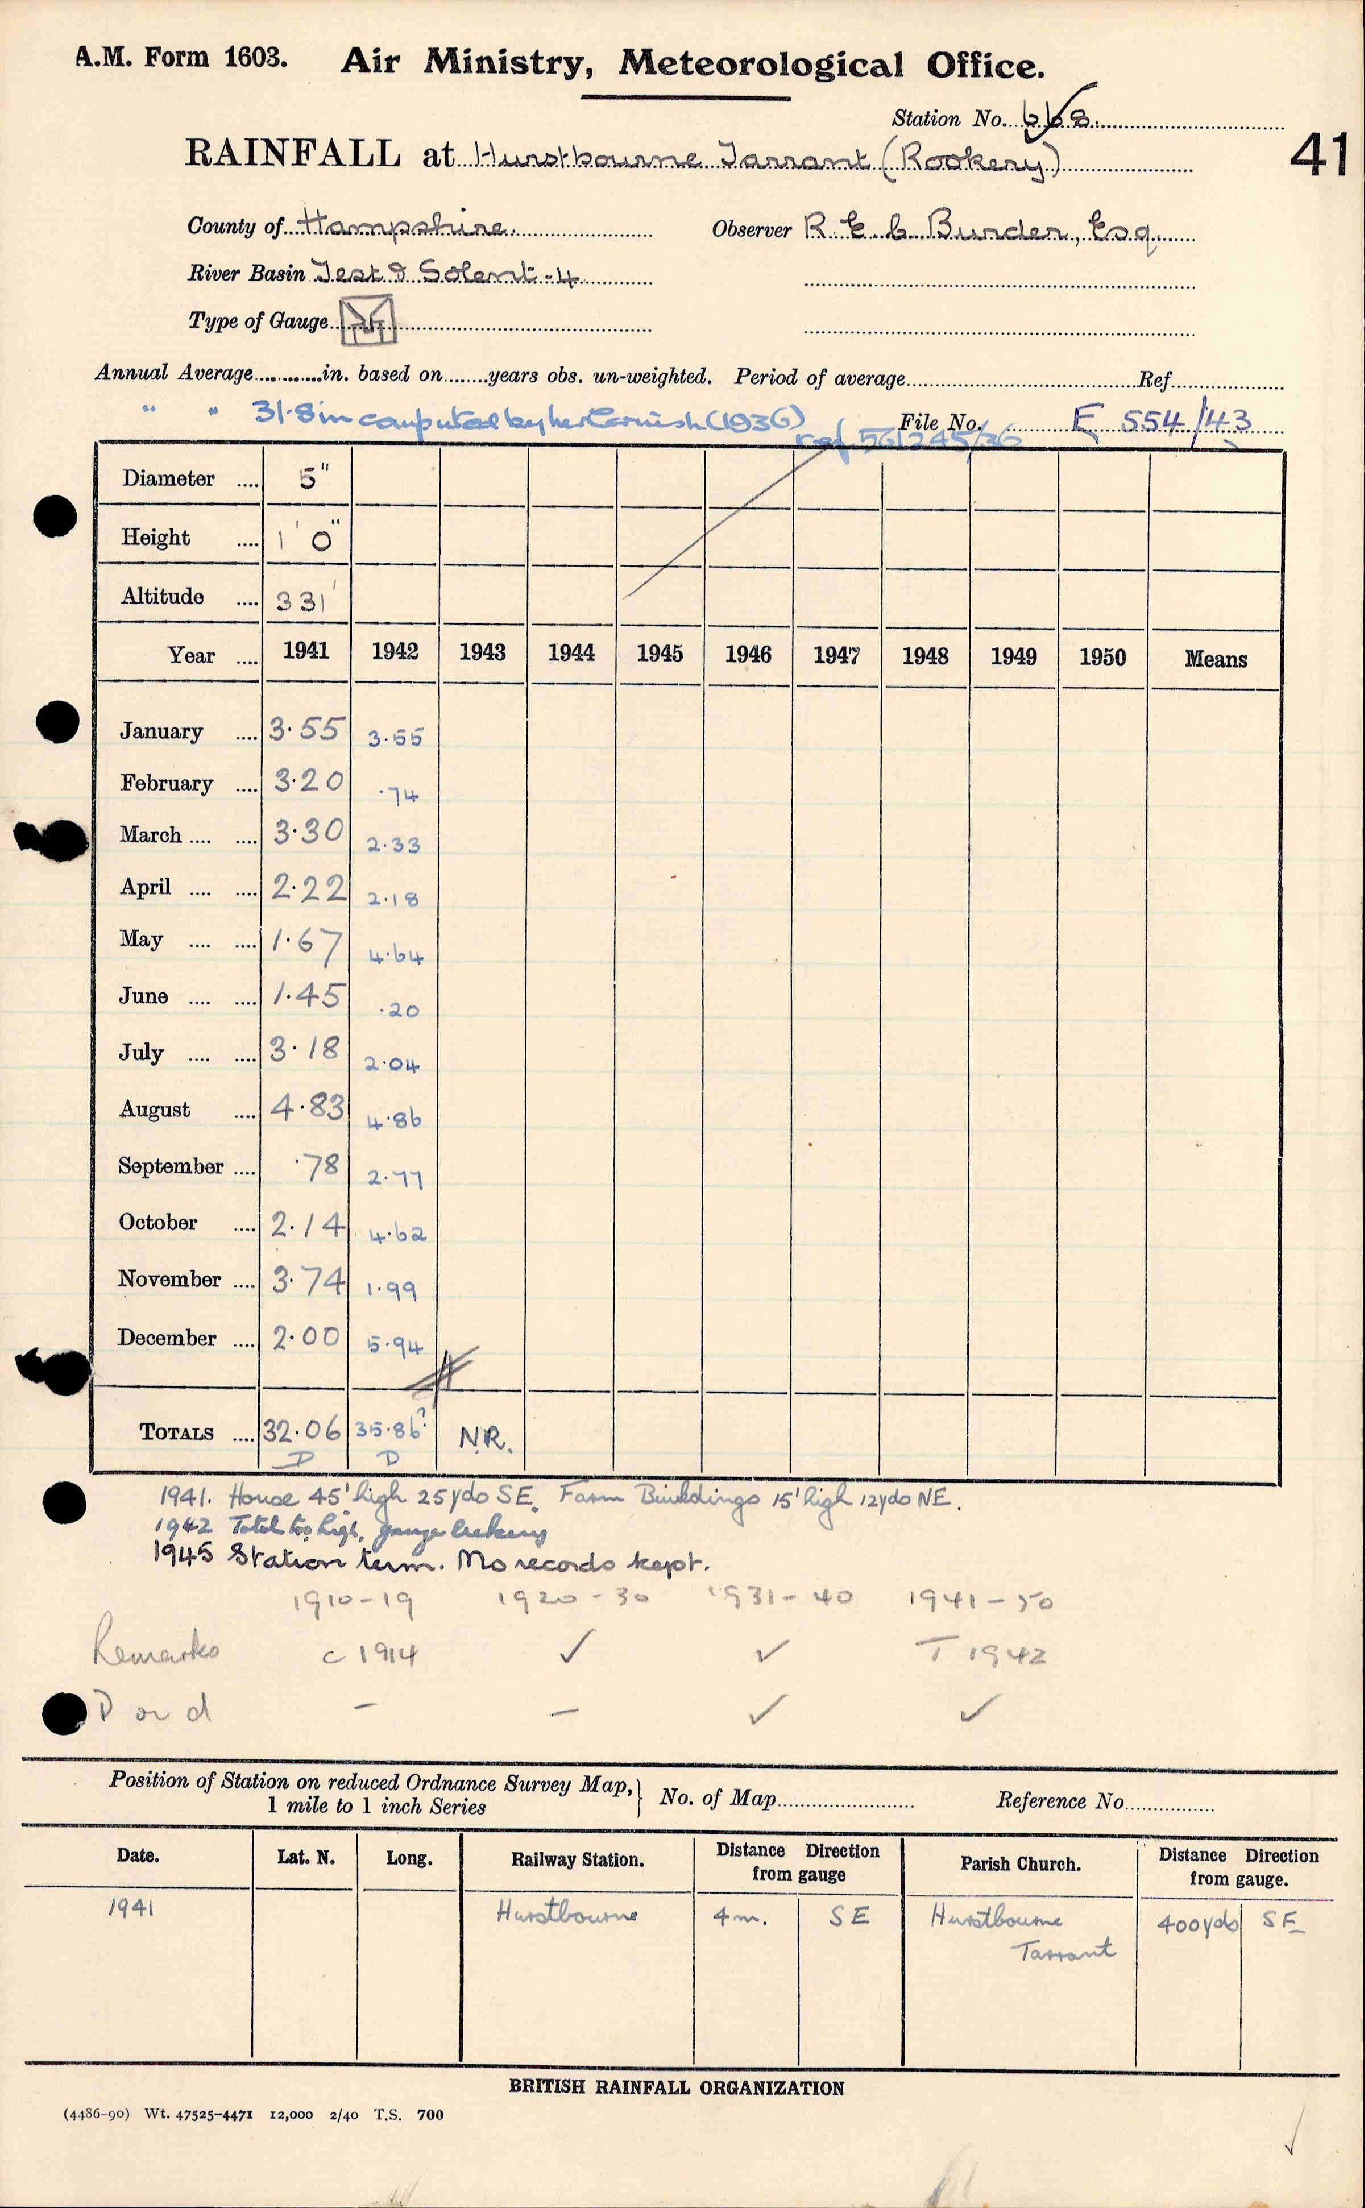 A.M. Form 1603. Air Ministry, Meteorological Office.
Station No. 668.
41
RAINFALL at Hurstbourne Tarrant (Rookery)
County of Hampshire. Observer R. E. C. Burder, Esq.
River Basin Test & Solent-4
Type of Gauge M
Annual Average............in. based on........years obs. un-weighted. Period of average.......... Ref..........
" " 31.8in computed by (1936) File No. E 554/43
ref 561245/36
Diameter .... 5"
Height .... 1' 0"
Altitude .... 331'
Year .... 1941 1942 1943 1944 1945 1946 1947 1948 1949 1950 Means
January .... 3.55 3.55
February .... 3.20 .74
March .... .... 3.30 2.33
April .... .... 2.22 2.18
May .... .... 1.67 4.64
June .... .... 1.45 .20
July .... .... 3.18 2.04
August .... 4.83 4.86
September .... .78 2.77
October .... 2.14 4.62
November .... 3.74 1.99
December .... 2.00 5.94
TOTALS .... 32.06 35.86? N.R.
D D
1941. House 45' high 25yds SE. Farm Buildings 15' high 12yds NE.
1942 Total too high, gauge leaking
1945 Station term. No records kept.
1910-19 1920-30 1931-40 1941-50
Remarks c 1914 ✓ ✓ T 1942
D or d - - ✓ ✓
Position of Station on reduced Ordnance Survey Map, } No. of Map.......... Reference No..........
1 mile to 1 inch Series
Date. Lat. N. Long. Railway Station. Distance Direction from gauge Parish Church. Distance Direction from gauge.
1941 Hurstbourne 4m. SE Hurstbourne 400yds SE
Tarrant
BRITISH RAINFALL ORGANIZATION
(4486-90) Wt. 47525-4471 12,000 2/40 T.S. 700